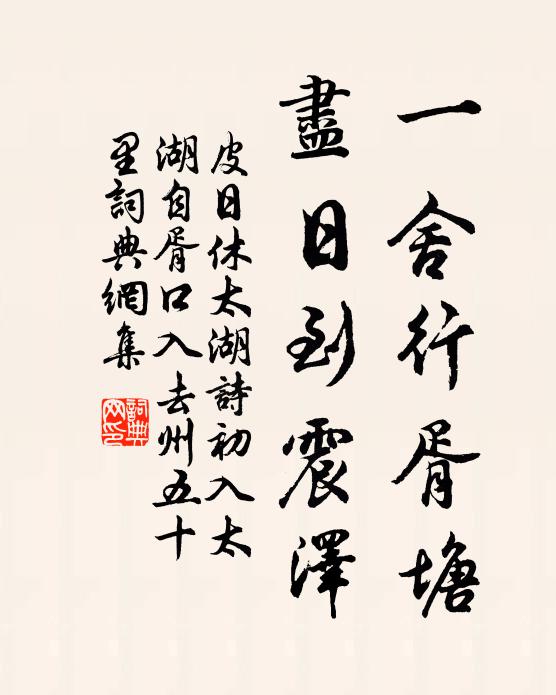 一舍行胥塘
盡日到震澤
皮日休太湖詩初入太
湖自胥口入去州五十
里詞典網集
詞典
网印